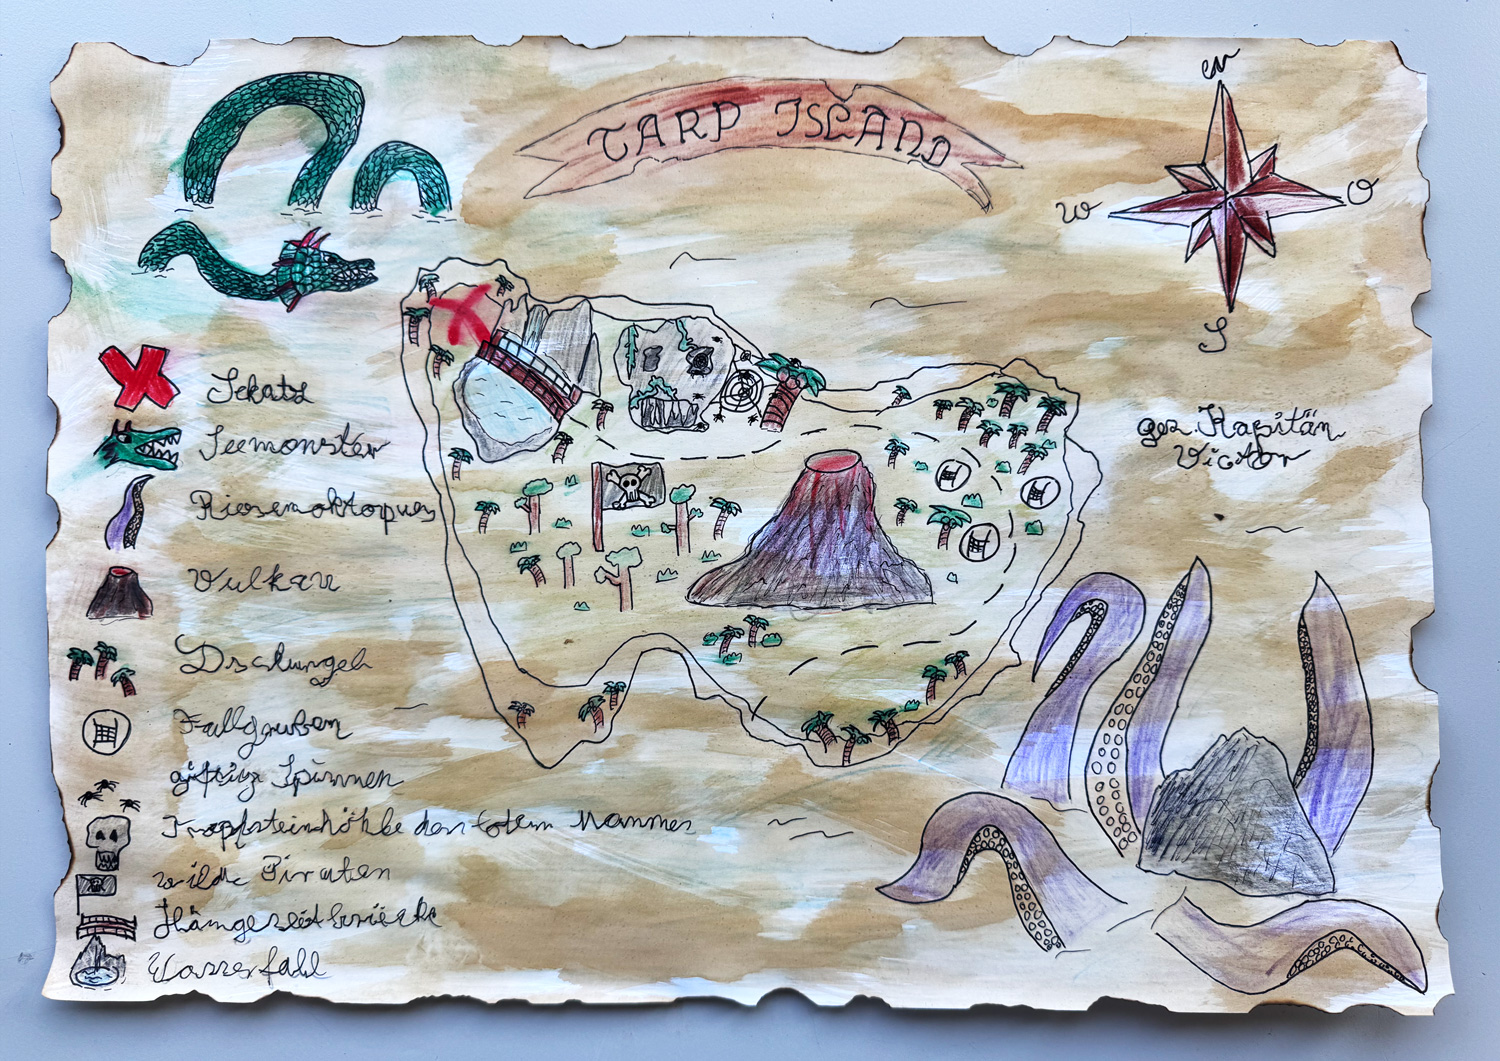 TARP ISLAND
N
W
O
S
gez. Kapitän
Victor
Schatz
Seemonster
Riesenoktopus
Vulkan
Dschungel
Fallgruben
giftige Spinnen
Tropfsteinhöhle des toten Mannes
wilde Piraten
Hängeseilbrücke
Wasserfall